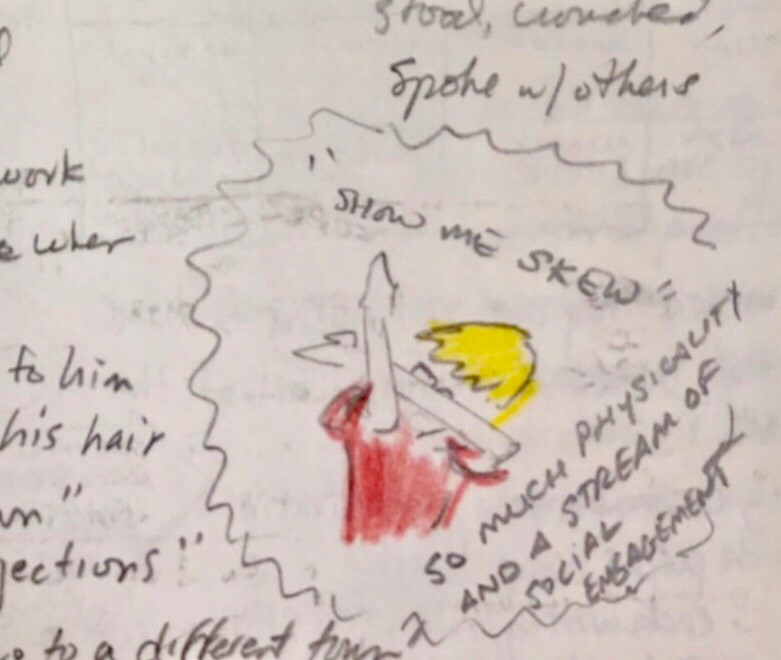 stood, crouched,
Spoke w/others
work
to him
his hair
"SHOW ME SKEW"
SO MUCH PHYSICALITY
AND A STREAM OF
SOCIAL
ENGAGEMENT
to a different town